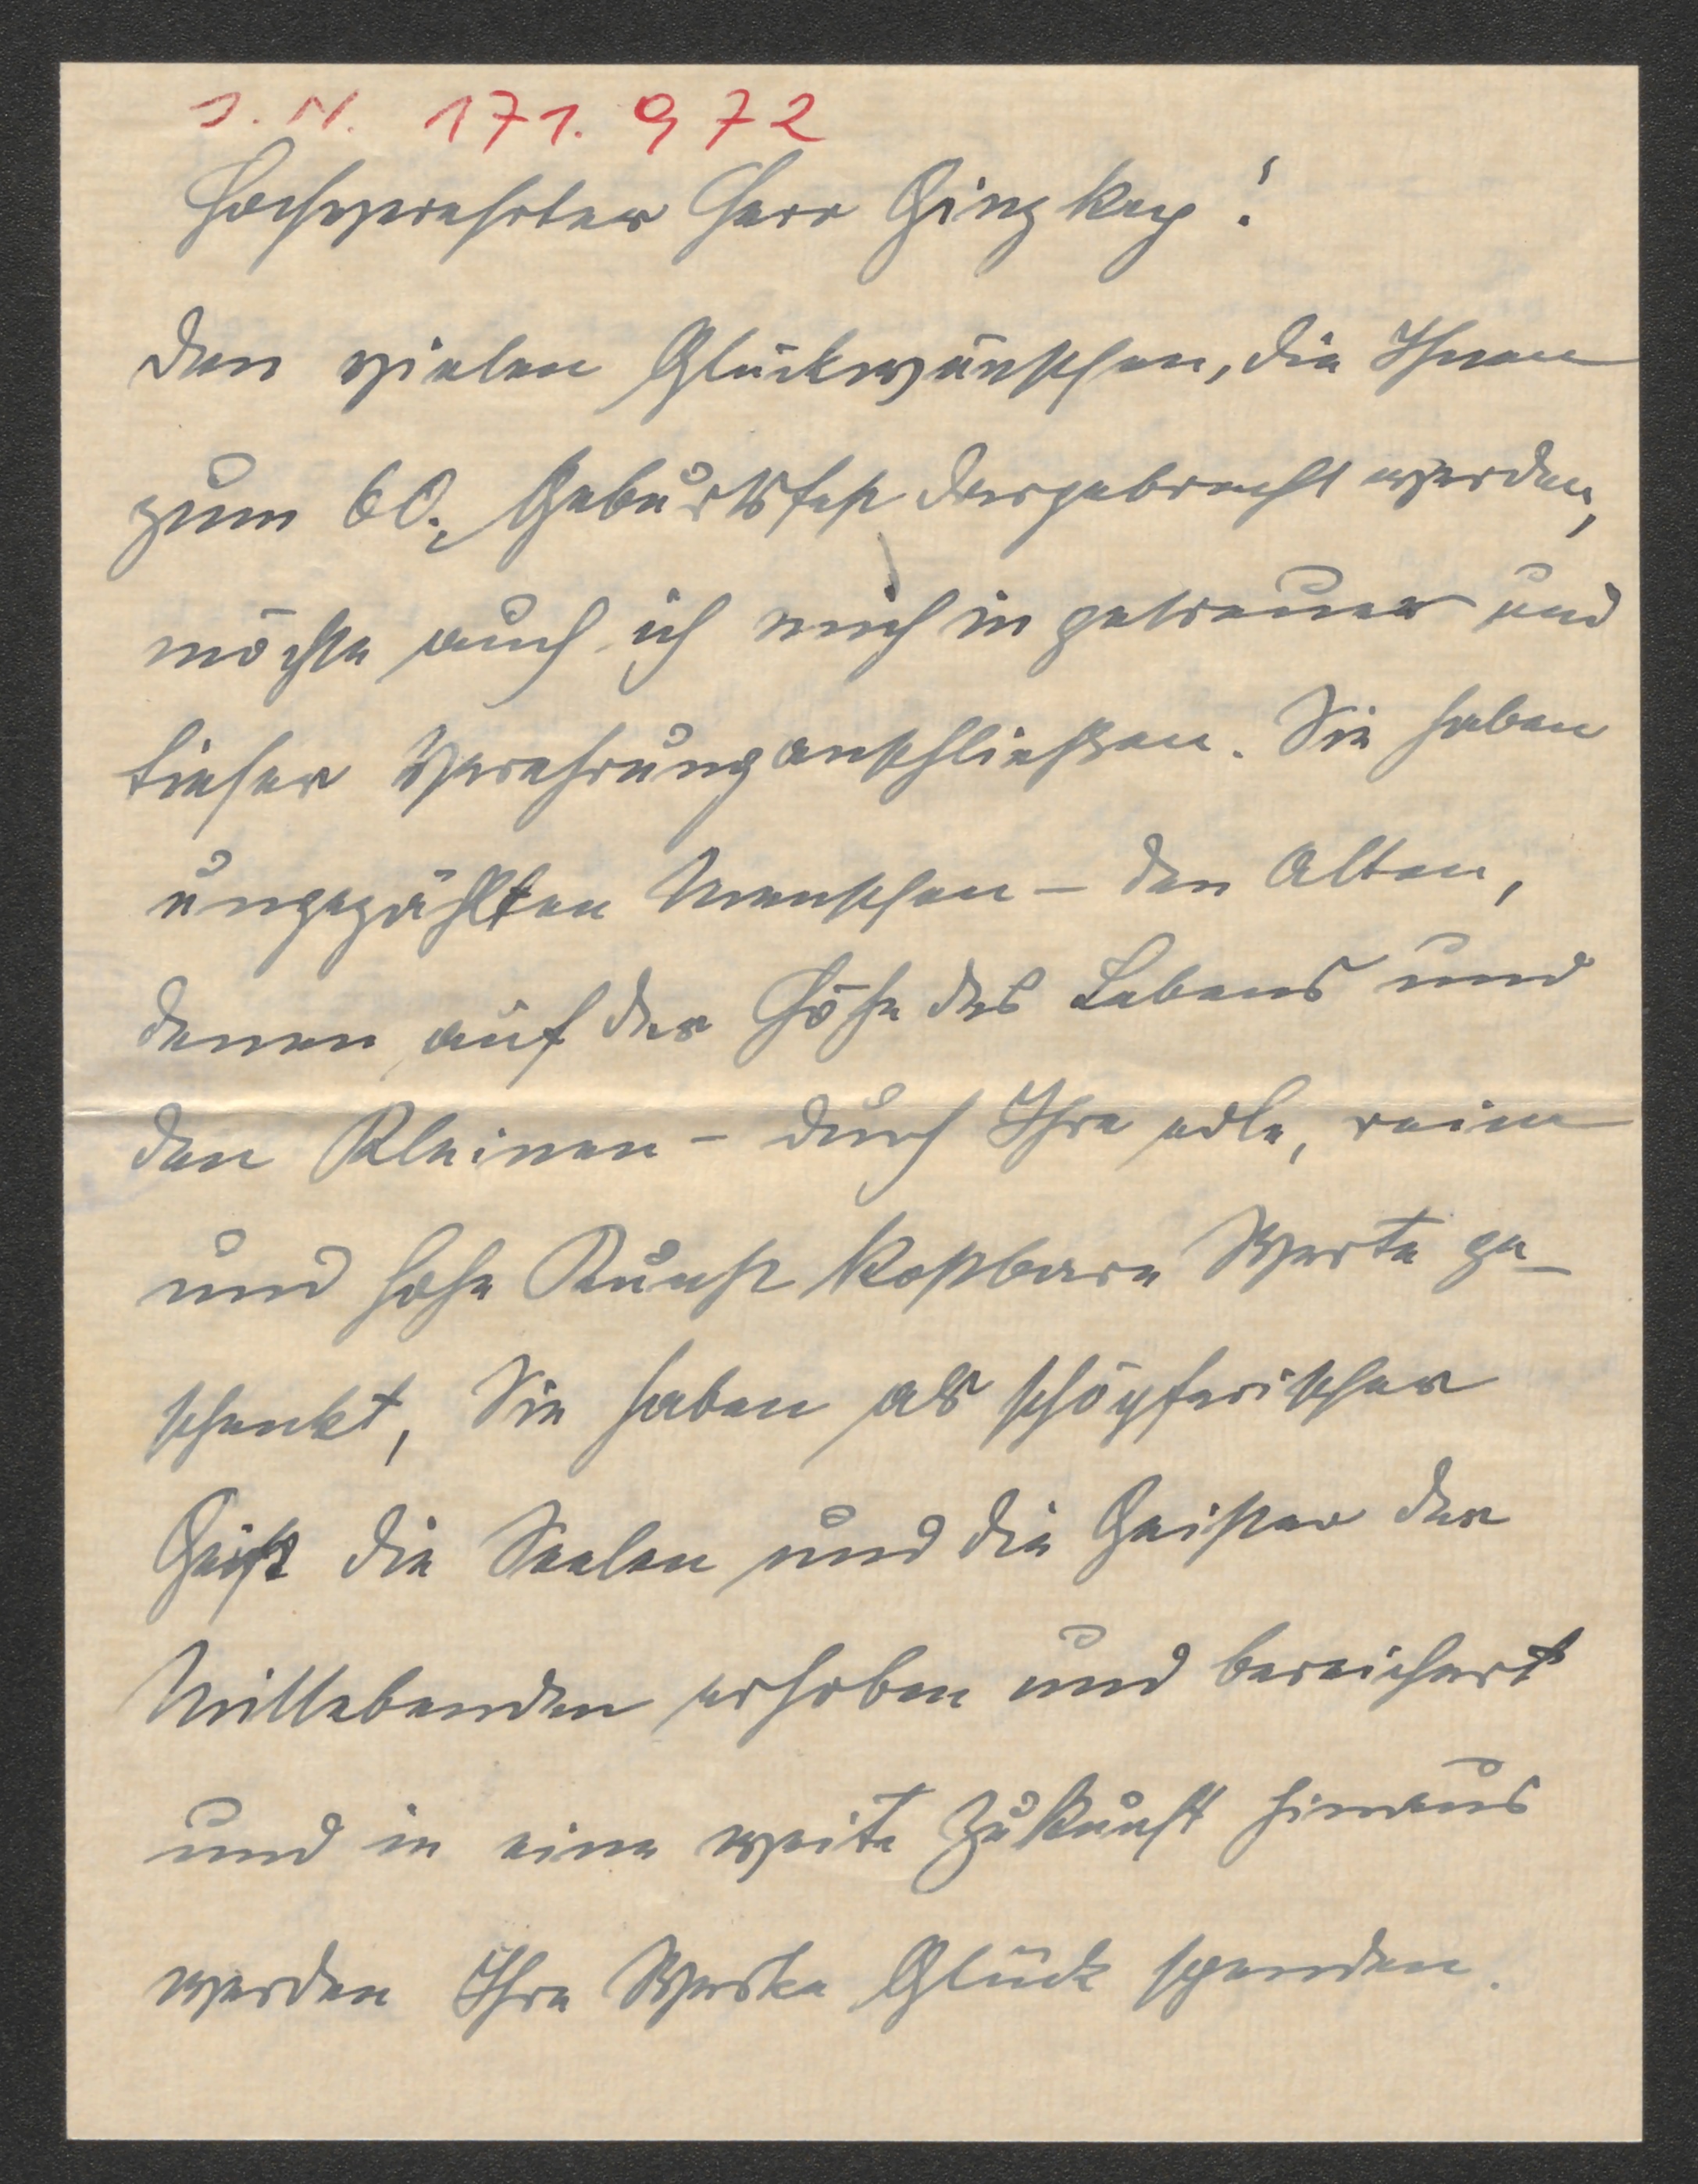 J. N. 171.972
Hochverehrter Herr Ginzkey!
Den vielen Glückwünschen, die Ihnen
zum 60. Geburtsfest dargebracht werden,
möchte auch ich mich in getreuer und
tiefer Verehrung anschließen. Sie haben
ungezählten Menschen – den Alten,
denen auf der Höhe des Lebens und
den Kleinen – durch Ihre edle, reine
und hohe Kunst kostbare Werte ge-
schenkt, Sie haben als schöpferischer
Geist die Seelen und die Geister der
Mitlebenden erhoben und bereichert
und in eine weite Zukunft hinaus
werden Ihre Werke Glück spenden.